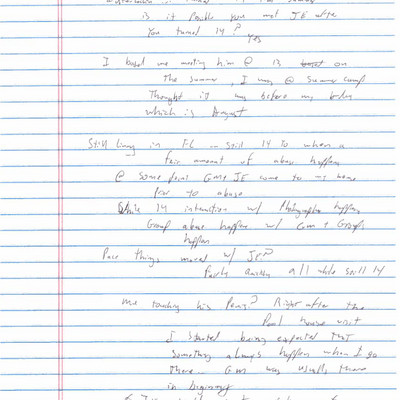 is it Possible you met JE after
you turned 14?
Yes
I based me meeting him @ 13 based on
The summer, I was @ summer camp
Thought it was before my bday
which is August
Still living in FL – still 14 to when a
fair amount of abuse happen
@ some point GM + JE come to my home
for no abuse
while 14 interaction w/ Photographs happen
Group abuse happen w/ GM + Group
happen
Pace things moved w/ JE?
Fairly quickly all while still 14
me touching his Penis? Right after the
Pool house visit
I started being expected that
something always happen when I go
There – GM was usually there
in beginning